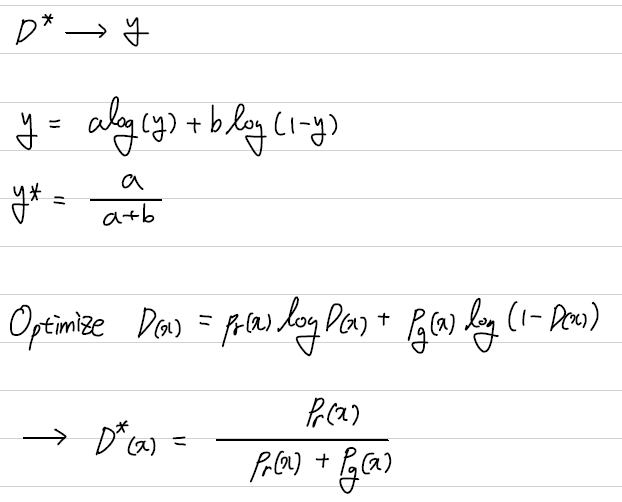 D* → y
y = a log(y) + b log(1-y)
y* = a/(a+b)
Optimize D(x) = Pr(x) log D(x) + Pg(x) log(1-D(x))
→ D*(x) = Pr(x)/(Pr(x) + Pg(x))